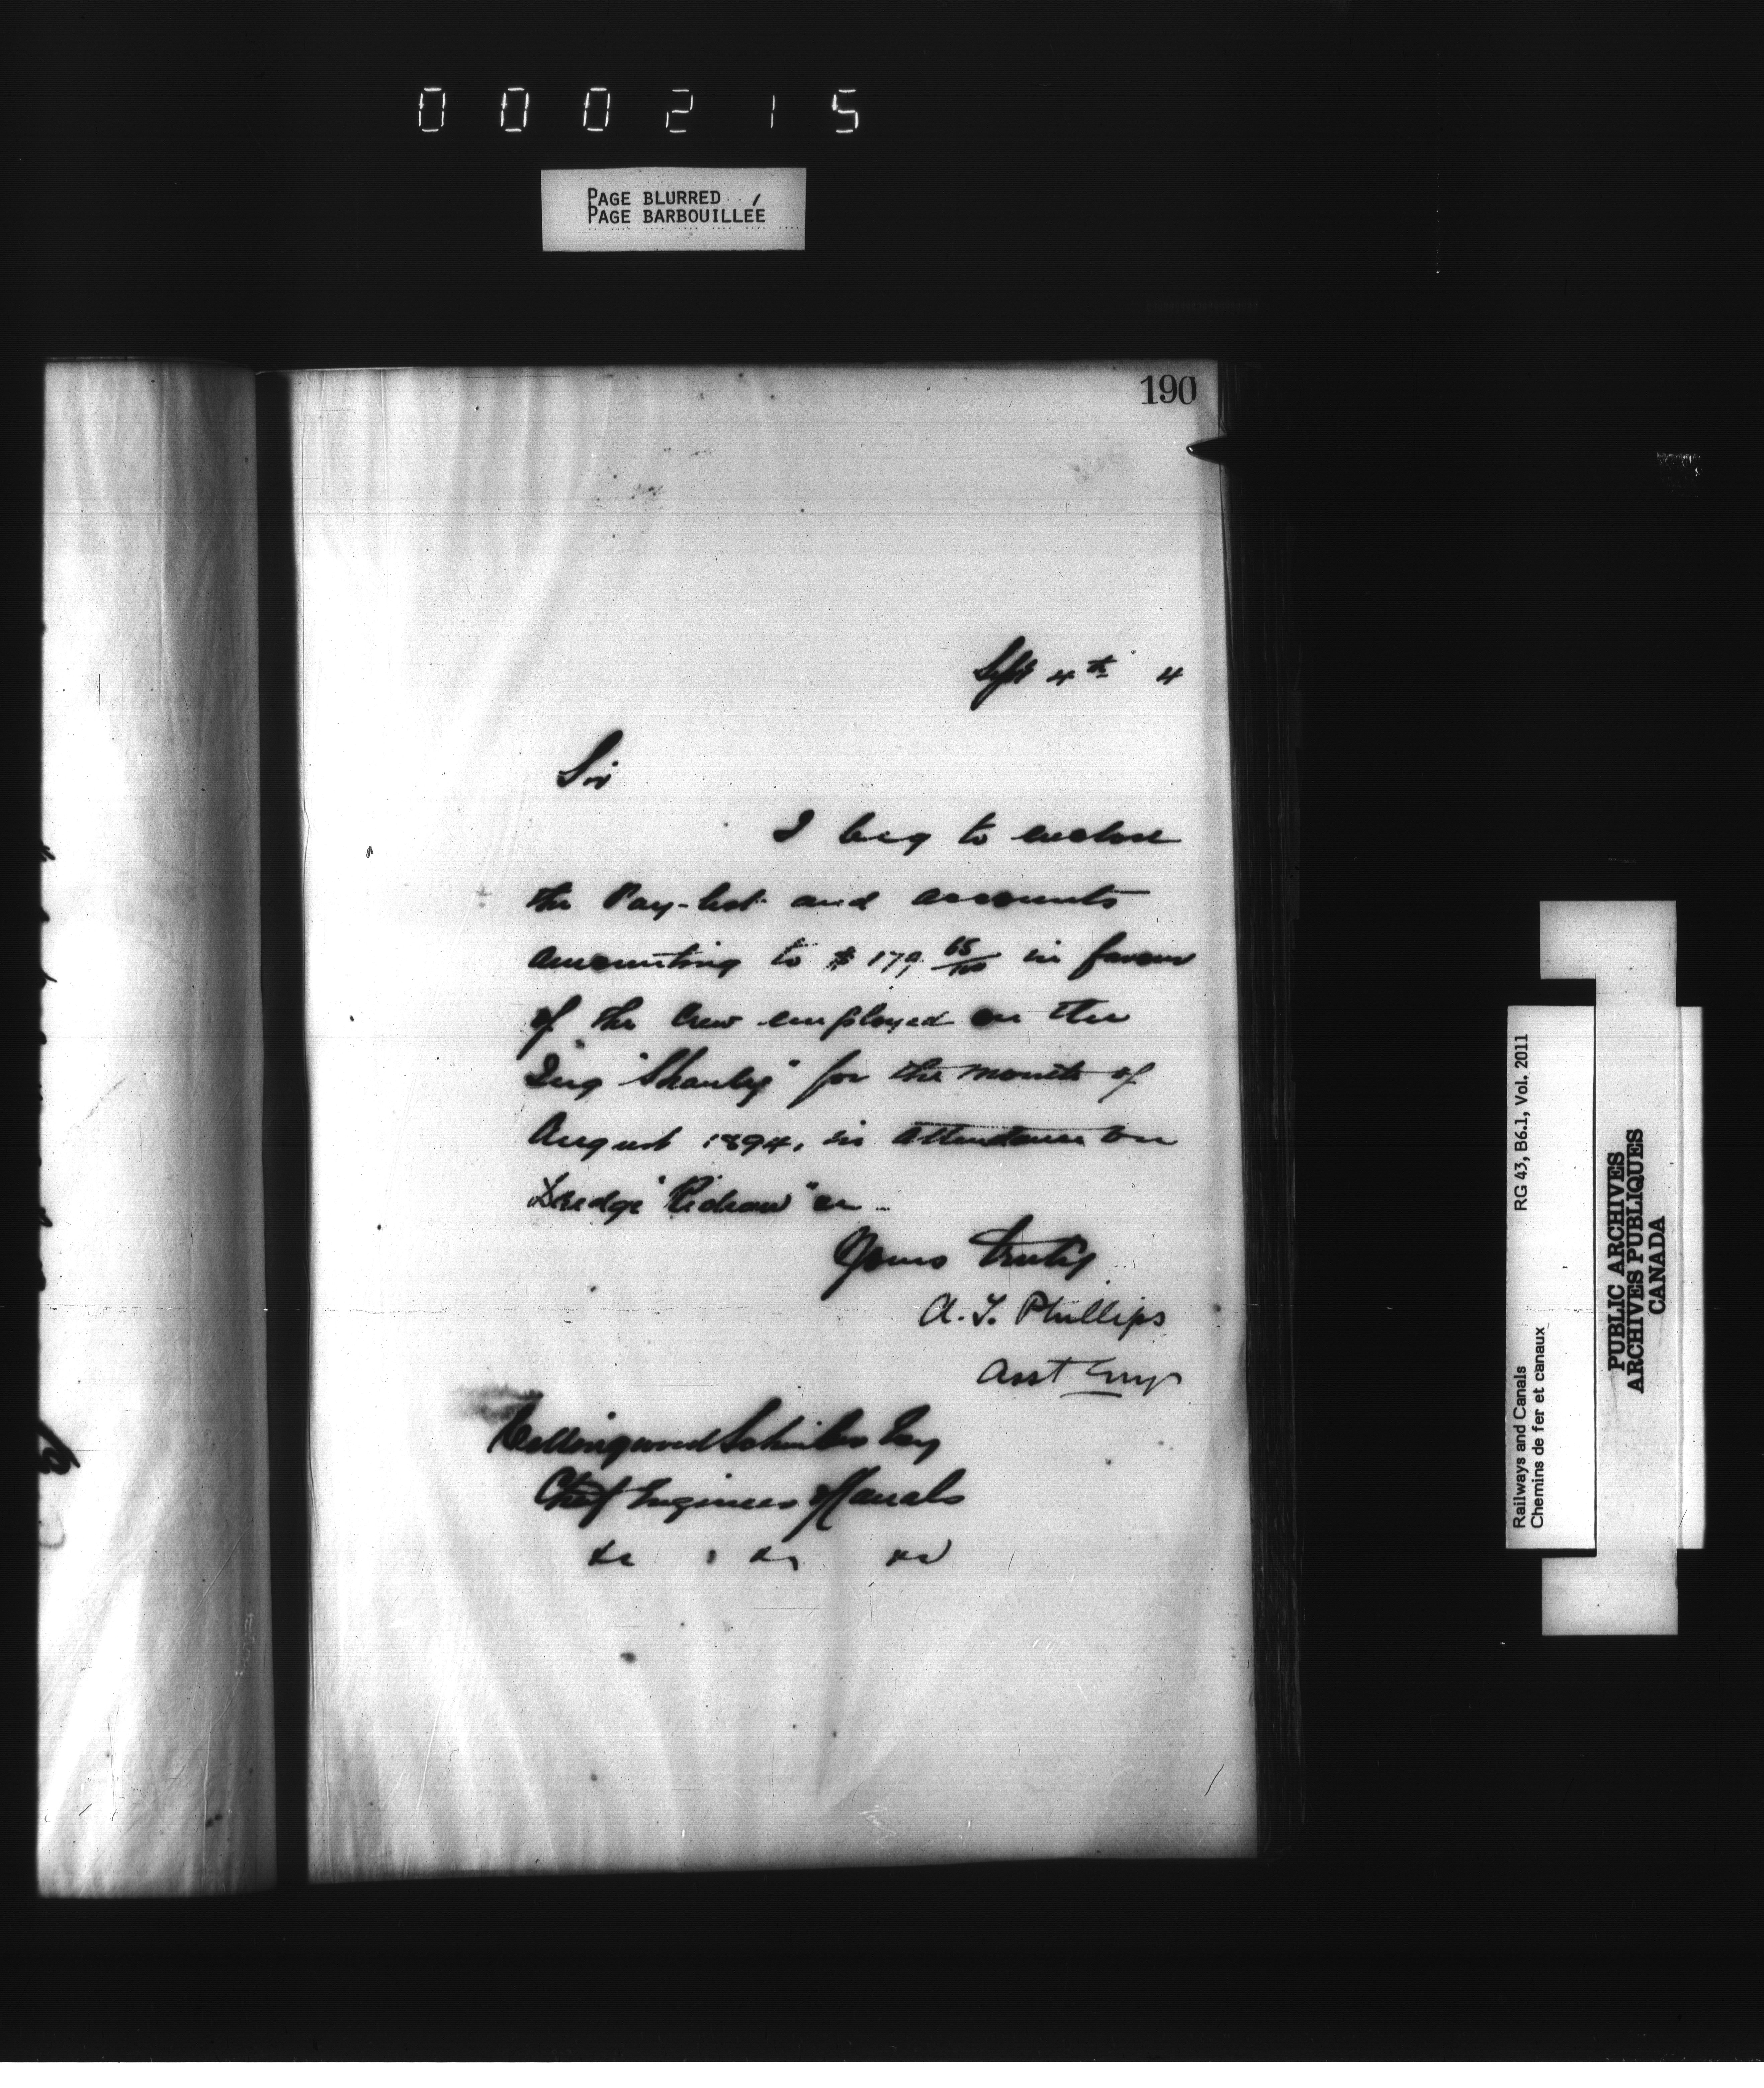 000215
PAGE BLURRED
PAGE BARBOUILLÉE
190
Sept 4th 4
Sir
I beg to enclose
the Pay-list and accounts
amounting to $ 179 65/100 in favour
of the Crew employed on the
Tug "Shanly" for the month of
August 1894, in attendance on
Dredge "Rideau"
Yours truly
A. T. Phillips
Asst Engr
Collingwood Schreiber Esq
Chief Engineer of Canals
&c &c &c
Railways and Canals RG 43, B6.1, Vol. 2011
Chemins de fer et canaux
PUBLIC ARCHIVES
ARCHIVES PUBLIQUES
CANADA